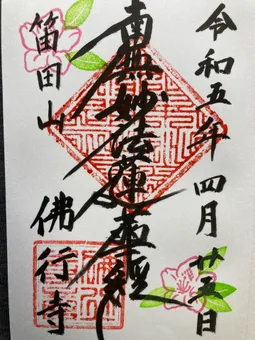 令和五年四月廿五日
南無妙法蓮華経
笛田山
佛行寺